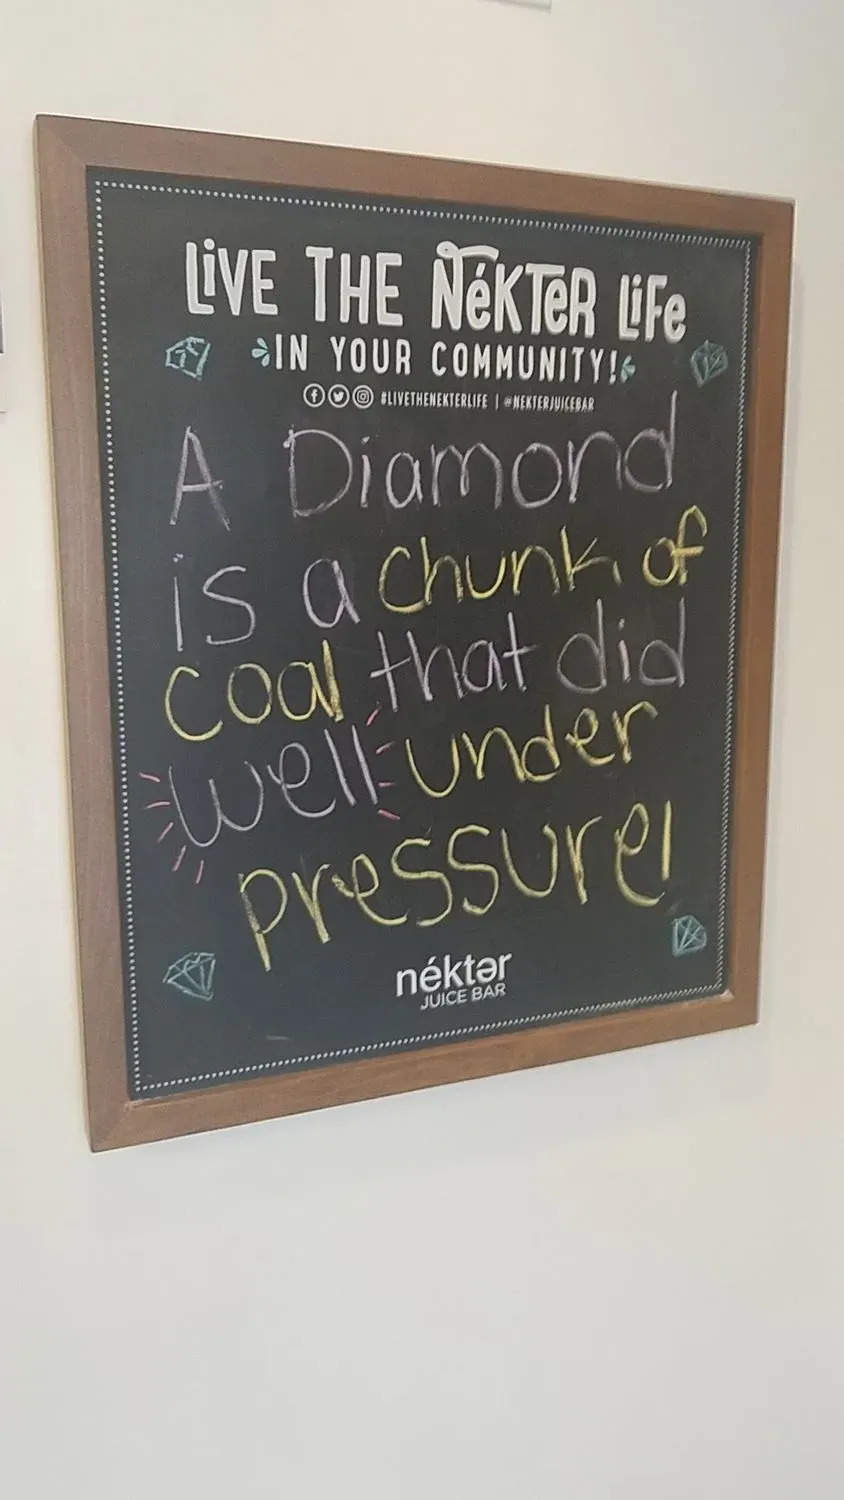 LiVE THE NéKTeR LiFe
IN YOUR COMMUNITY!
#LIVETHENEKTERLIFE | @NEKTERJUICEBAR
A Diamond
is a chunk of
coal that did
well under
pressure!
néktər
JUICE BAR